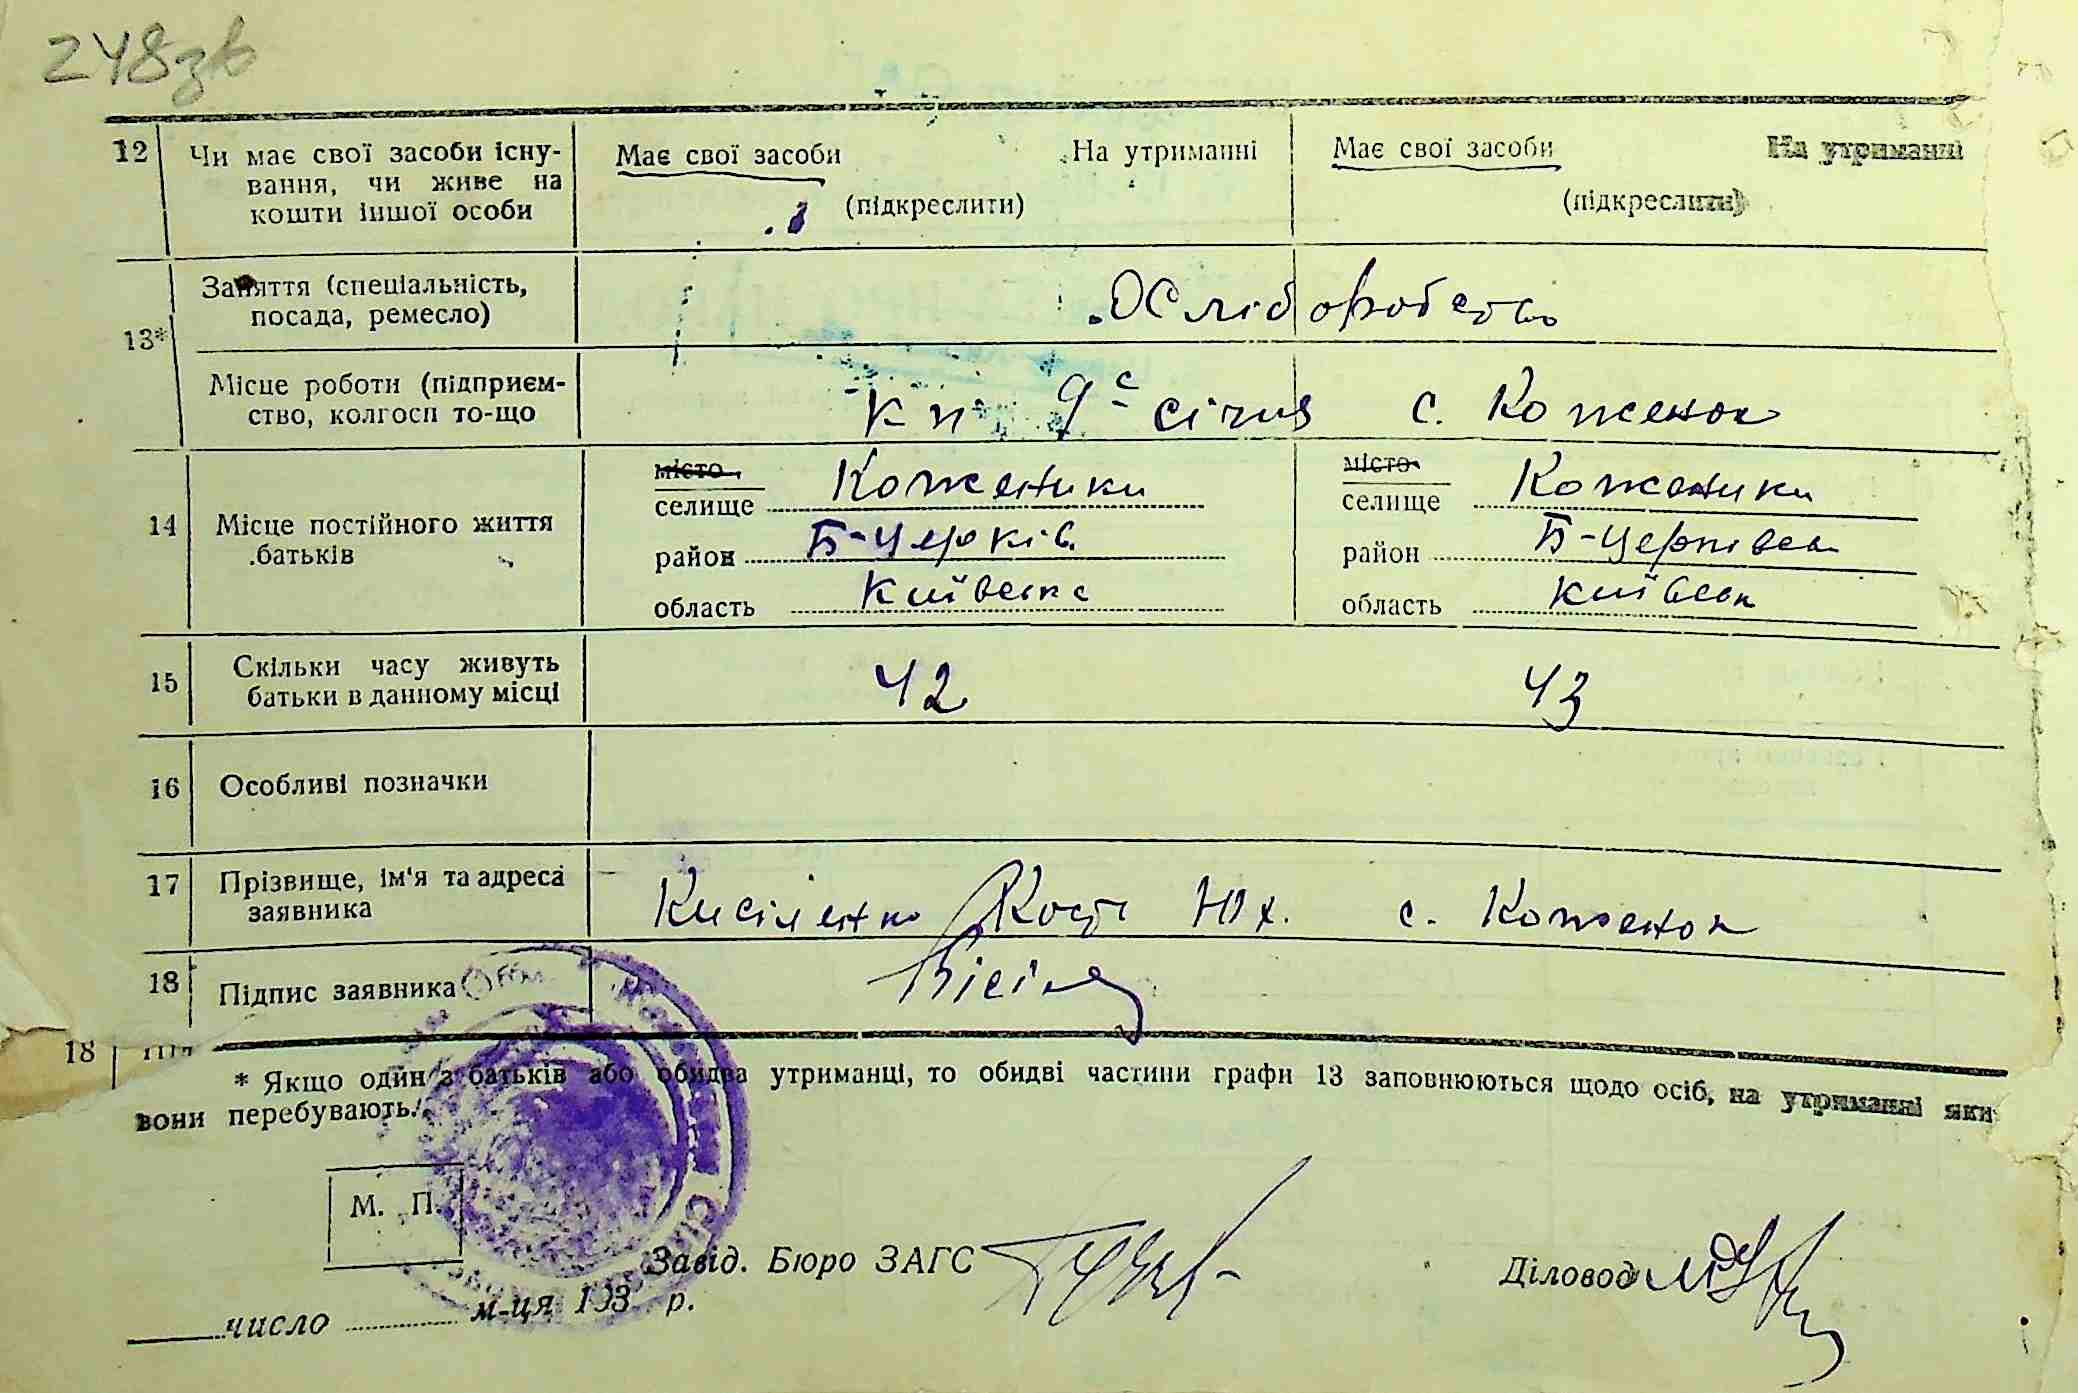 248зв
12 Чи має свої засоби існу-
вання, чи живе на
кошти іншої особи
Має свої засоби На утриманні
(підкреслити)
Має свої засоби На утриманні
(підкреслити)
13* Заняття (спеціальність,
посада, ремесло)
Хліборобство
Місце роботи (підприєм-
ство, колгосп то-що
кп 9с січня с. Коженок
14 Місце постійного життя
батьків
місто
селище Коженики
район Б-Церків.
область Київська
місто
селище Коженики
район Б-Церківськ
область Київськ
15 Скільки часу живуть
батьки в данному місці
42 43
16 Особливі позначки
17 Прізвище, ім'я та адреса
заявника
Кисіленко Кость Юх. с. Коженок
18 Підпис заявника
18
* Якщо один з батьків або обидва утриманці, то обидві частини графи 13 заповнюються щодо осіб, на утриманні яки
вони перебувають.
М. П.
Завід. Бюро ЗАГС
Діловод
число м-ця 193 р.